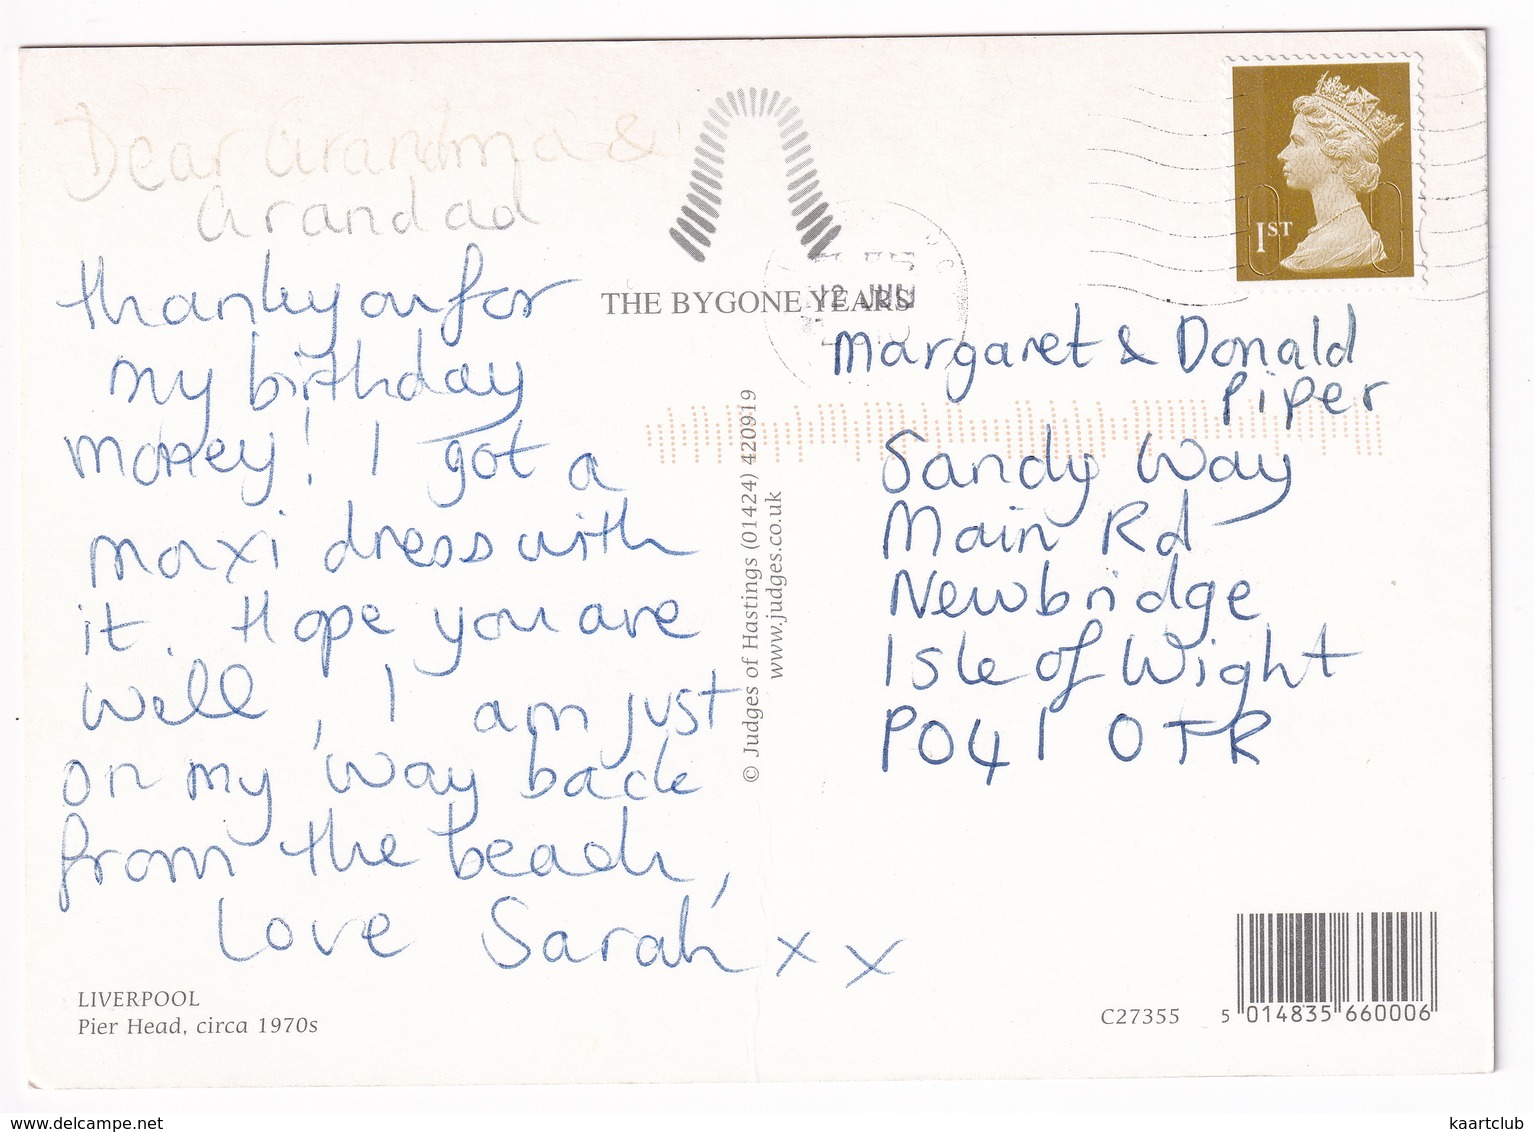 Dear Grandma &
Grandad
thankyou for
my birthday
money! I got a
maxi dress with
it. Hope you are
well, I am just
on my way back
from the beach,
Love Sarah x x
THE BYGONE YEARS
12 JUL
1ST
Margaret & Donald
Piper
Sandy Way
Main Rd
Newbridge
Isle of Wight
PO41 0TR
© Judges of Hastings (01424) 420919
www.judges.co.uk
LIVERPOOL
Pier Head, circa 1970s
C27355
5 014835 660006
www.delcampe.net
kaartclub